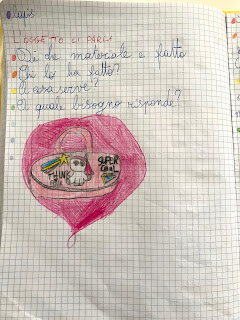 L'OGGETTO CI PARLA
Di che materiale è fatto
Chi lo ha fatto?
A cosa serve?
A quale bisogno risponde?
THINK
SUPER
COOL